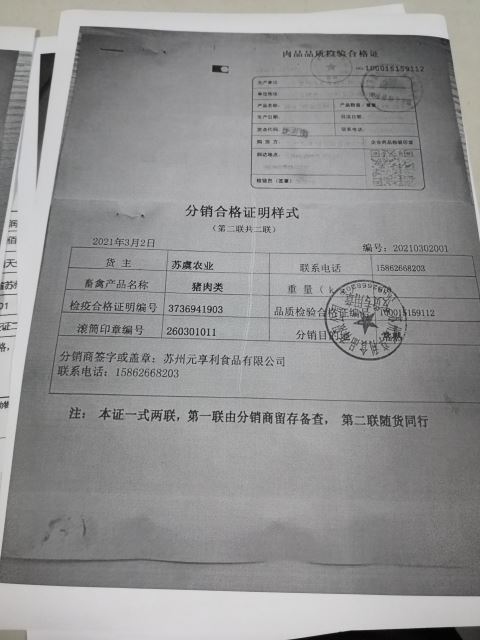 肉品品质检验合格证
NO 100015159112
生产单位:
单位地址:
产品名称: 产品数量/重量
生产日期: 联系电话:
购货方: 企业肉品检验印章
到达地点:
检验员（签章）
分销合格证明样式
（第二联共二联）
2021年3月2日 编号：20210302001
货 主 苏虞农业 联系电话 15862668203
畜禽产品名称 猪肉类 重量
检疫合格证明编号 3736941903 品质检验合格证编 100015159112
滚筒印章编号 260301011 分销目的
分销商签字或盖章：苏州元亨利食品有限公司
联系电话：15862668203
注： 本证一式两联，第一联由分销商留存备查， 第二联随货同行